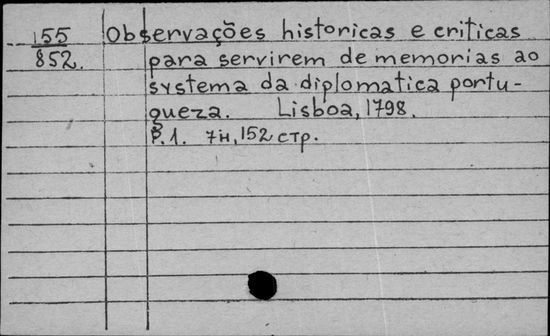 155
852.
Observações historicas e criticas
para servirem de memorias ao
systema da diplomatica portu-
gueza. Lisboa, 1798.
P.1. 7н, 152 стр.